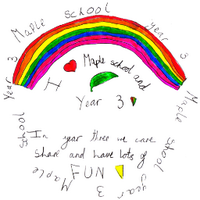 Maple school
year 3
Maple
school
year
3
Maple
school
Year 3
I Maple school and
Year 3
In year three we care
share and have lots of
FUN